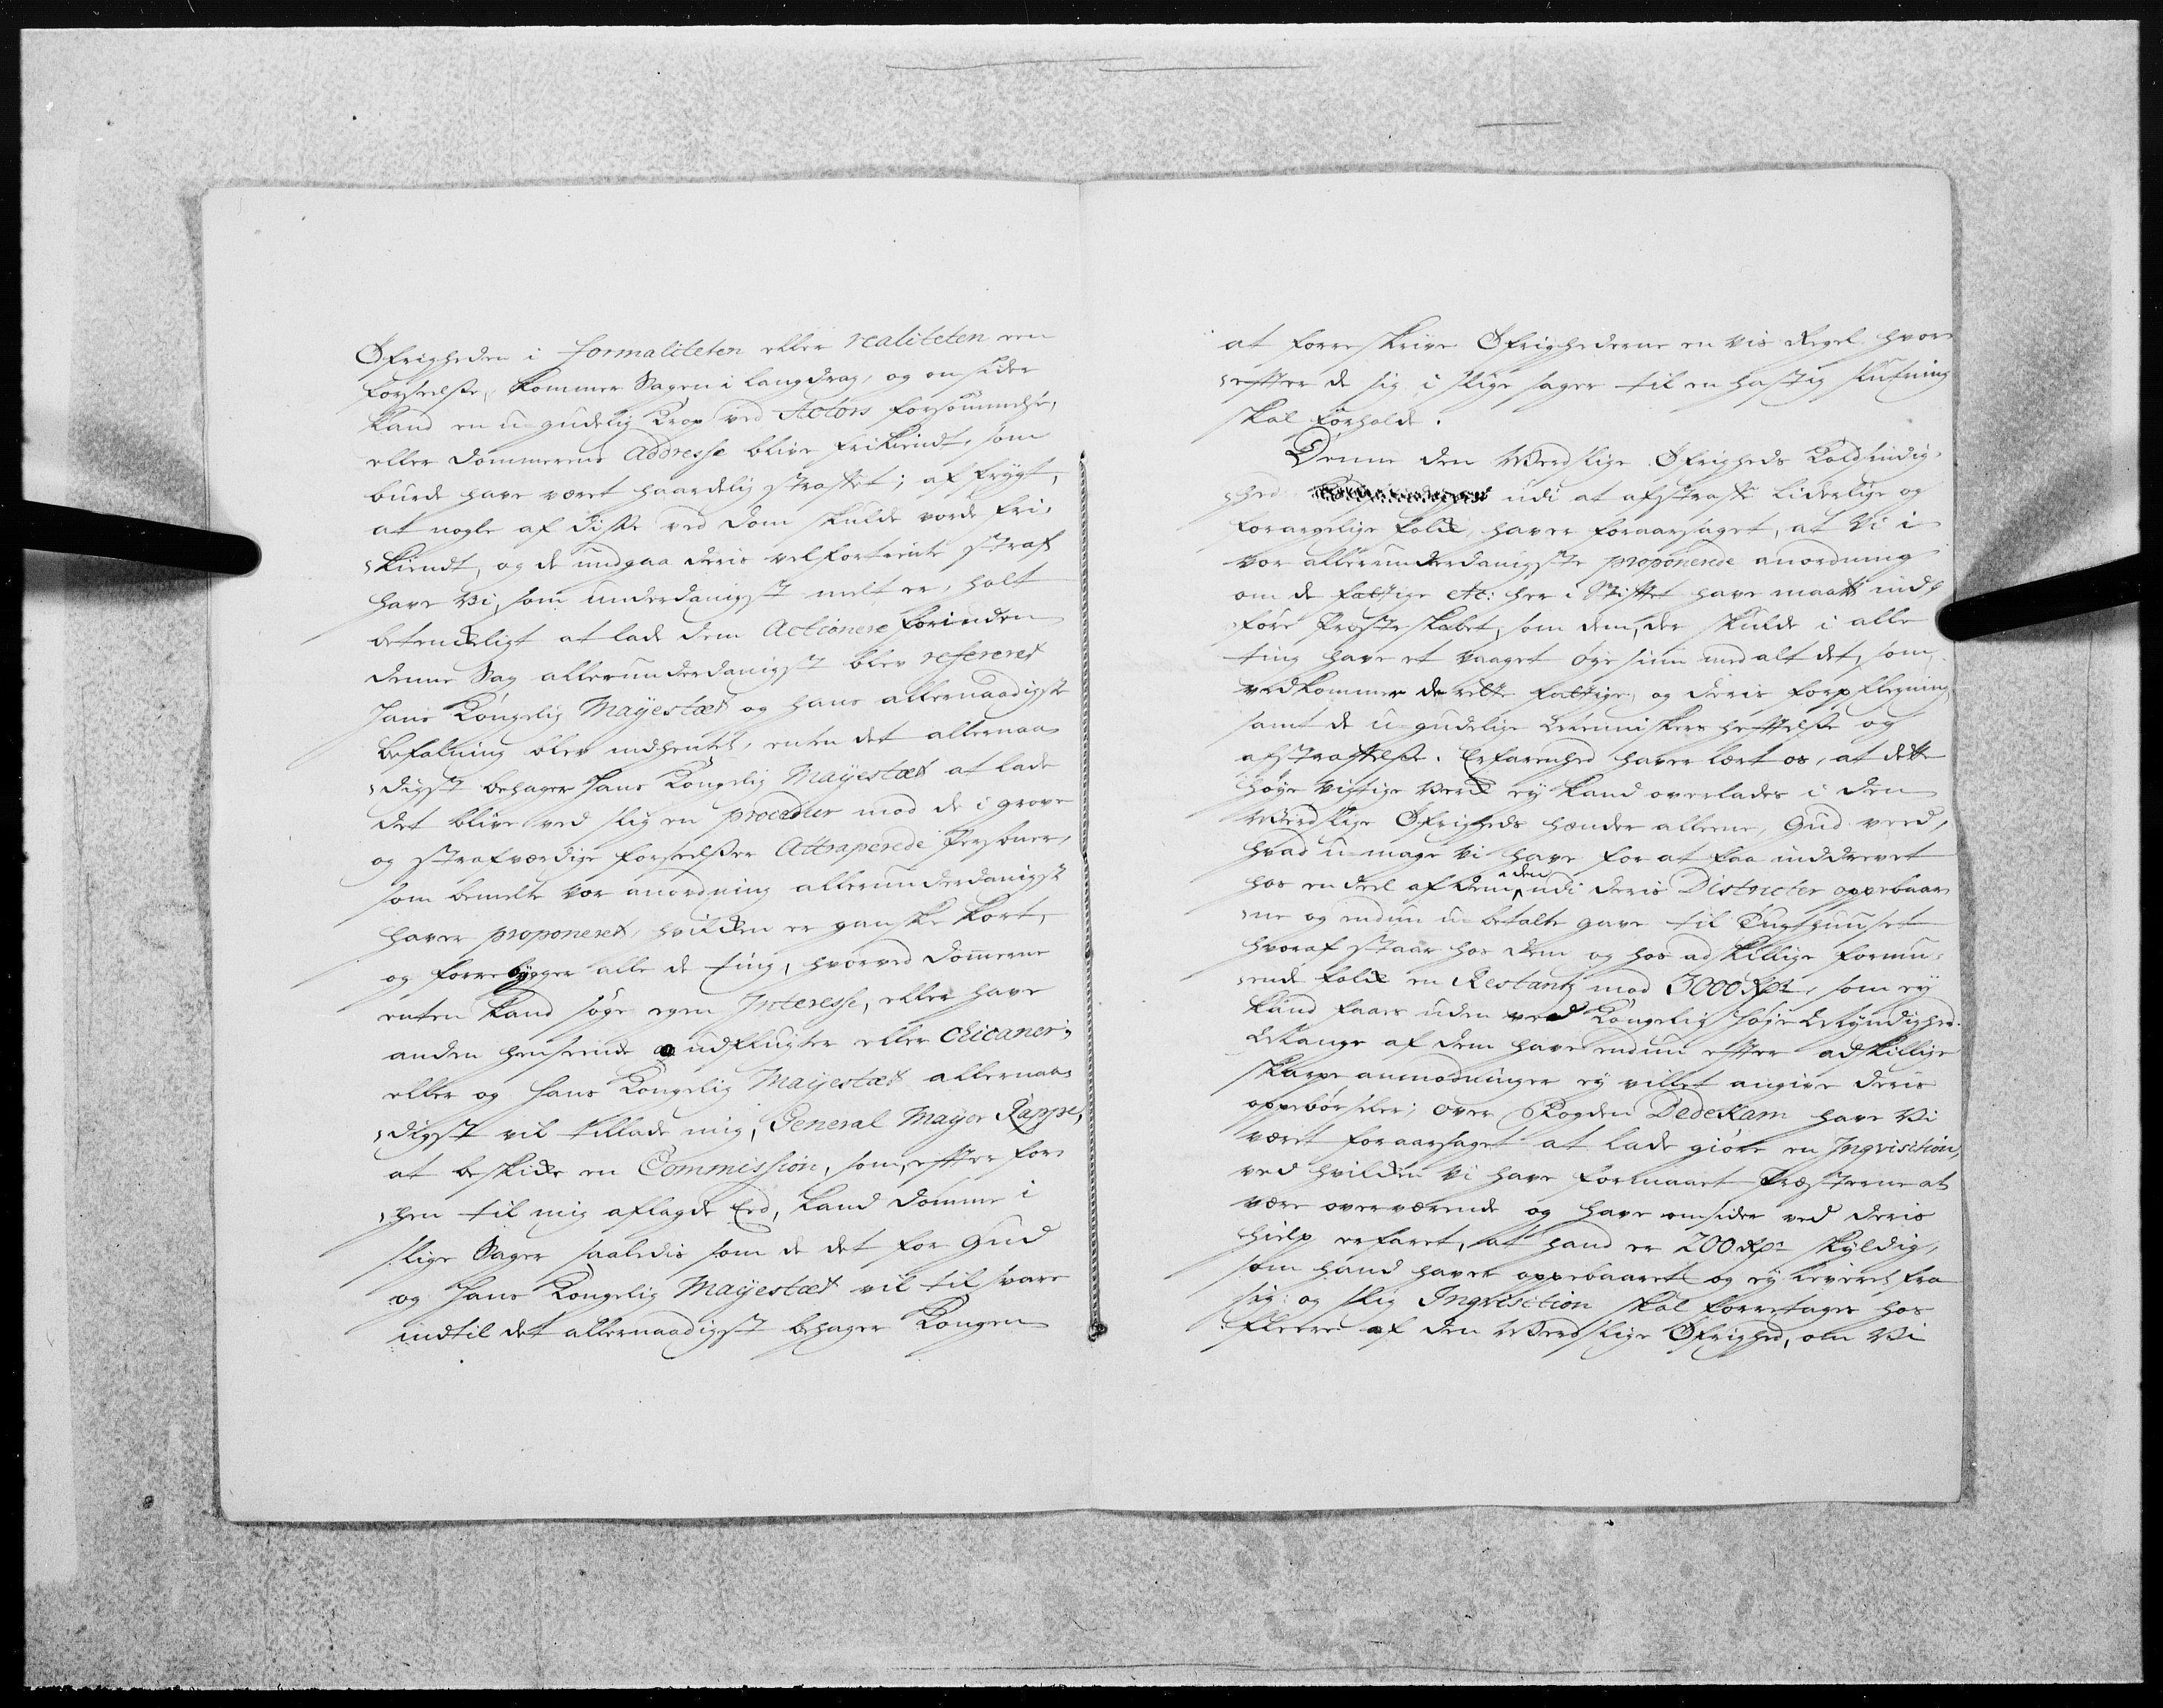 Øfrigheden i formaliteten eller realiteten een
forseelse, kommer Sagen i langdrag, og omsider
kand en u-gudelig Krop ved Actors forsømmelse,
eller Dommerens Addresse blive frikiendt, som
burde have været haardelig straffet; af frygt,
at nogle af disse ved dom skulde vorde fri-
kiendt, og de undgaa deris velfortiente straf
have Vi, som underdanigst melt er, holt
betenckeligt at lade dem Actionere forinden
denne Sag allerunderdanigst blev refereret
Hans Kongelig Mayestæt og hans allernaadigste
befalning blev indhentet, enten det allernaa-
digst behager Hans Kongelig Mayestæt at lade
det blive ved slig en procedur mod de i grove
og strafværdige forseelser Attraperede Persohner,
som bemelte vor anordning allerunderdanigst
haver proponeret, hvilcken er ganske kort,
og forrebygger alle de ting, hvorved Dommerne
enten kand søge egen Interesse, eller have
anden henseende udflugter eller Chicaner;
eller og Hans Kongelig Mayestæt allernaa-
digst vil tillade mig, General Mayor Rappe,
at beskicke en Commission, som, efter for-
hen til mig aflagde Eed, kand dømme i
slige Sager saaledis som de det for Gud
og Hans Kongelig Mayestæt vil tilsvare
indtil det allernaadigst behager Kongen
at forreskrive Øfrighederne en vis Regel hvor-
efter de sig i slige sager til en hastig slutning
skal forholde.
Denne den Verdslige Øfrigheds Koldsindig-
hed udi at afstraffe liderlige og
forargelige folck, haver foraarsaget, at Vi i
vor allerunderdanigste proponerede anordning
om de fattige etc: her i Stiftet have maatt ind-
føre Præsteskabet, som dem, der skulde i alle
ting have et vaaget øye sinn med alt det, som
vedkommer de rette fattige, og deris forpflegning,
samt de u-gudelige Menniskers heftelse og
afstraffelse. Erfarenhed haver lært os, at dette
høye vigtige Verck ey kand overlades i den
Verdslige Øfrigheds hænder alleene, Gud veed,
hvad u-mage Vi have for at faa inddrevet
hos en deel af dem, den udi deris Districter oppebaar-
ne og endnu u-betalte gave til Tugthuuset
hvoraf staar hos dem og hos adskillige formu-
ende folck en Restantz mod 3000 Rdr, som ey
kand faaes uden ved Kongelig høye Myndighed.
Mange af dem have endnu efter adskillige
skarpe anmodninger ey villet angive deris
oppebørseler; over Fogden Dedekam have Vi
været foraarsaget at lade giøre en Inqvisition,
ved hvilcken Vi have formaaet Præsterne at
være overværende og have omsider ved deris
hielp erfaret, at hand er 200 Rdr skyldig,
som hand haver oppebaaret og ey leveret fra
sig: og slig Inqvisition skal forretages hos
fleere af den Verdslige Øfrighed, om Vi